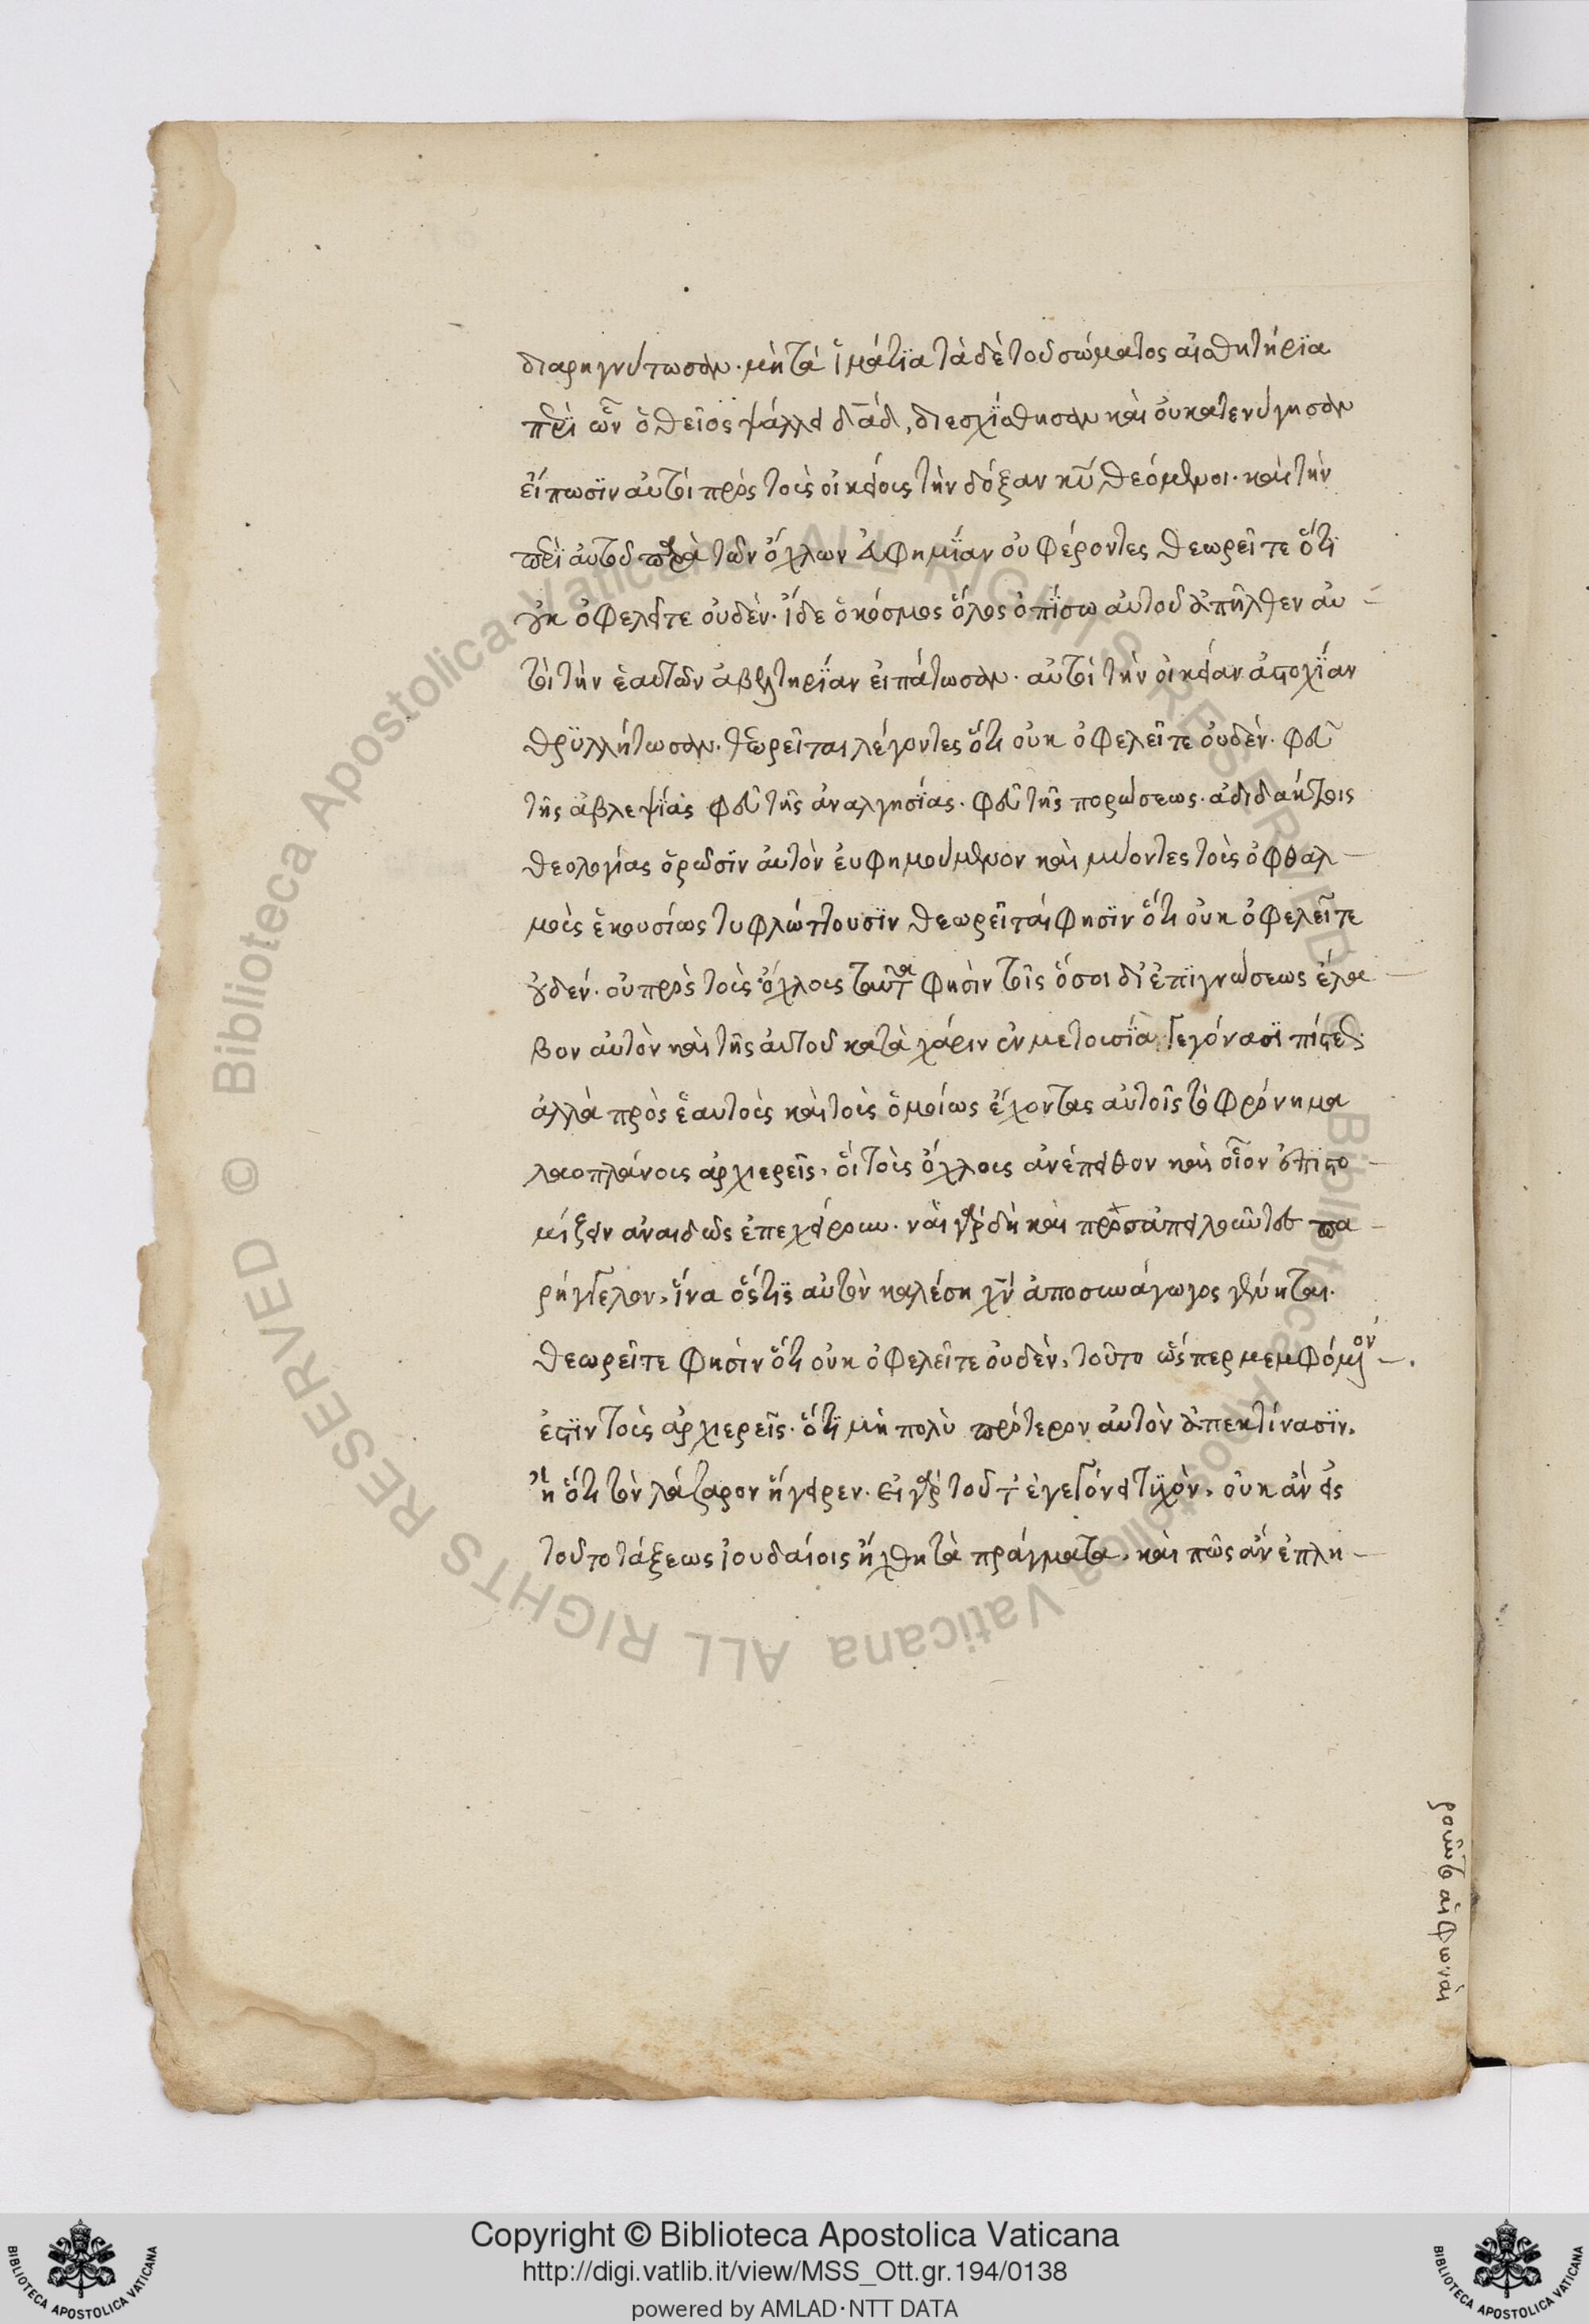 διαρηγνύτωσαν. μὴ τὰ ἱμάτϊα τὰ δὲ τοῦ σώματος αἰσθητήρϊα
περὶ ὧν ὁ θεῖος ψάλλει δᾱδ, διεσχϊσθησαν καὶ οὐ κατενύγησαν
εἴπωσϊν αὐτοὶ πρὸς τοὺς οἰκείους τὴν δόξαν κῡ θεόμενοι. καὶ τὴν
περὶ αὐτοῦ παρὰ τῶν ὄχλων εὐφημΐαν οὐ φέροντες θεωρεῖτε ὅτϊ
οὐκ ὀφελεῖτε οὐδὲν. ἴδε ὁ κόσμος ὅλος ὀπΐσω αὐτοῦ ἀπῆλθεν αὐ
τοὶ τὴν ἑαυτῶν ἀβελτηρΐαν εἰπάτωσαν. αὐτοὶ τὴν οἰκείαν ἀστοχΐαν
θρϋλλήτωσαν. θεωρεῖται λέγοντες ὅτι οὐκ ὀφελεῖτε οὐδὲν. φεῦ
τῆς ἀβλεψΐας φεῦ τῆς ἀναλγησΐας. φεῦ τῆς πορώσεως. ἀδιδακτοις
θεολογίας ὁρῶσϊν αὐτὸν ἐυφημούμενον καὶ μύοντες τοὺς ὀφθαλ
μοὺς ἑκουσίως τυφλώττουσϊν θεωρεῖταί φησϊν ὅτι οὐκ ὀφελεῖτε
οὐδέν. οὐ πρὸς τοὺς ὄχλους ταῦτα φησὶν τοῖς ὅσοι δι' ἐπϊγνώσεως ἔλα
βον αὐτὸν καὶ τῆς αὐτοῦ κατὰ χάριν ἐν μετουσΐα γεγόνασϊ πίστει
ἀλλὰ πρὸς ἑαυτοὺς καὶ τοὺς ὁμοίως ἔχοντας αὐτοῖς τὸ φρόνημα
λαοπλάνους ἀρχιερεῖς. οἱ τοὺς ὄχλους ἀνέπειθον καὶ οἷον ἐπιστο
μίζειν ἀναιδῶς ἐπεχείρουν. ναὶ γὰρ δὴ καὶ προσαπειλοῦντες πα
ρήγγελον. ἵνα ὅστϊς αὐτὸν καλέση χν̄ ἀποσυνάγωγος γένηται.
θεωρεῖτε φησὶν ὅτι οὐκ ὀφελεῖτε οὐδὲν. τοῦτο ὥσπερ μεμφόμενόν
ἐστϊν τοὺς ἀρχιερεῖς. ὅτϊ μὴ πολὺ πρότερον αὐτὸν ἀπεκτίνασϊν.
ἢ ὅτι τὸν λάζαρον ἤγειρεν. εἰ γὰρ τοῦτ' ἐγεγόνει τϋχὸν. οὐκ ἂν εἰς
τοῦτο τάξεως ἰουδαίοις ἤχθη τὰ πράγματα. καὶ πῶς ἂν ἐπλη
ροῦντο αἱ φωναὶ
Copyright © Biblioteca Apostolica Vaticana
http://digi.vatlib.it/view/MSS_Ott.gr.194/0138
powered by AMLAD·NTT DATA